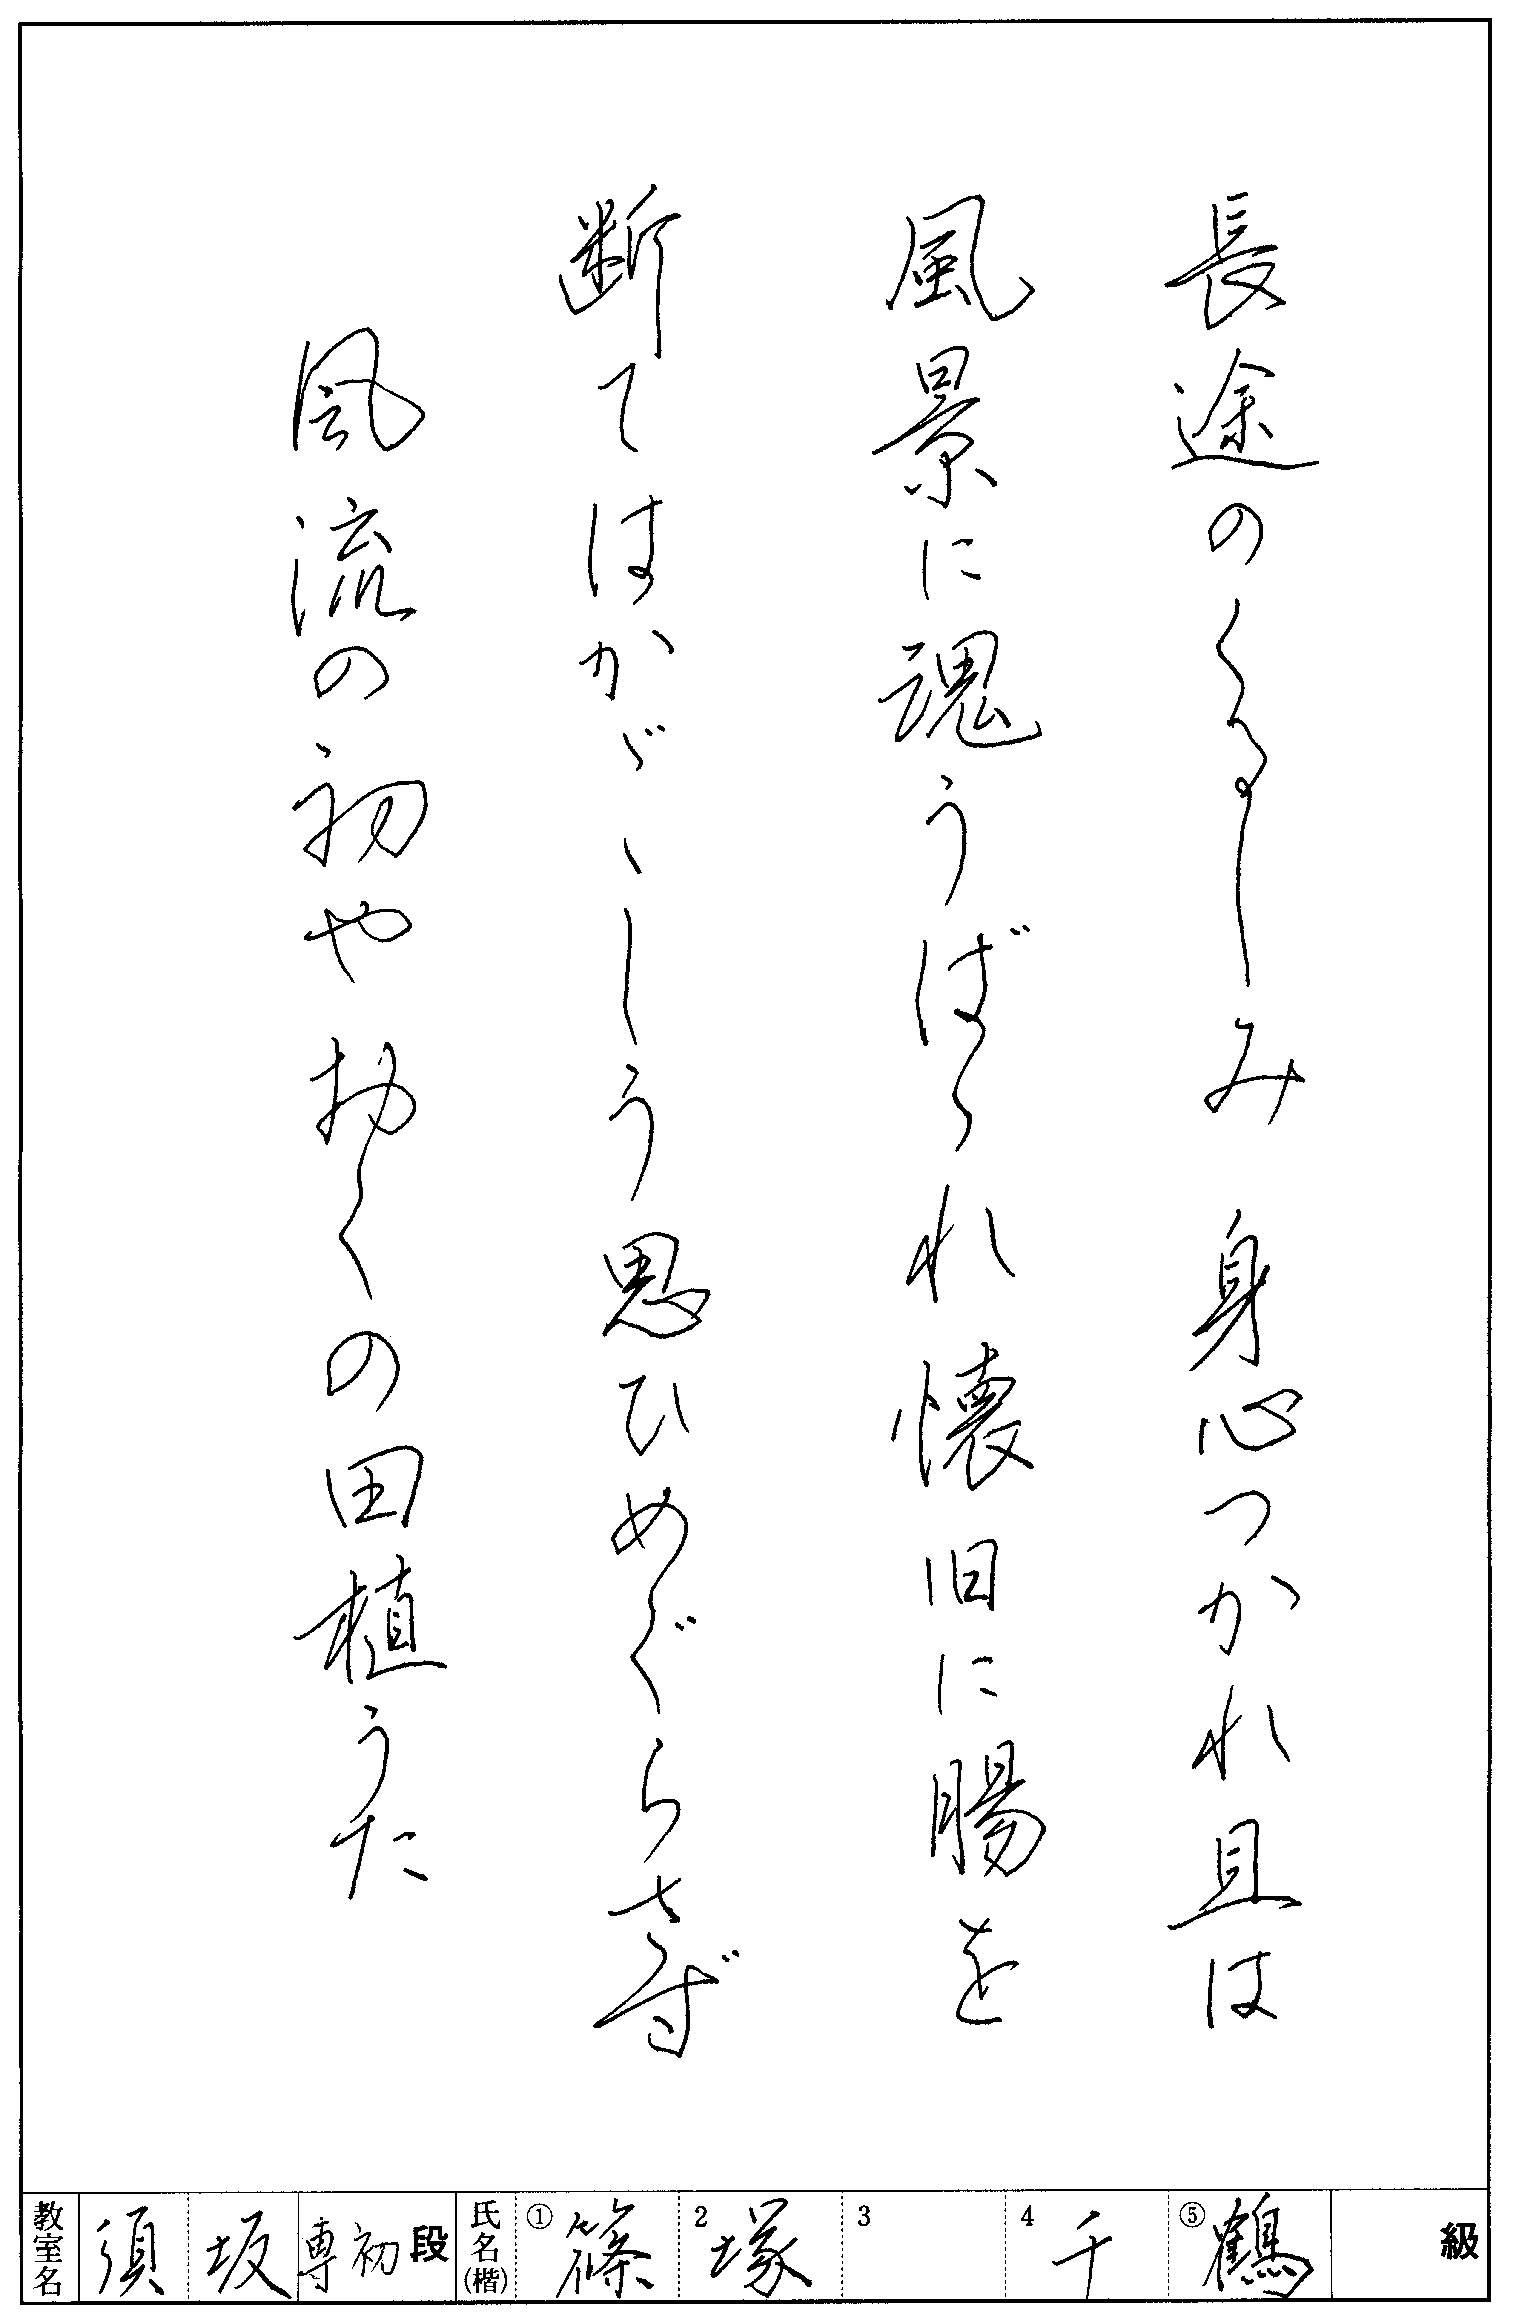 長途のくるしみ身心つかれ且は
風景に魂うばゝれ懐旧に腸を
断てはかゞゝしう思ひめぐらさず
風流の初やおくの田植うた
教室名 須坂 専初段 氏名(楷) ①篠 2塚 3 4千 ⑤鶴 級